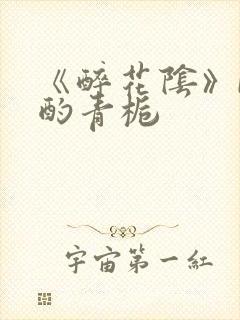 《醉花陰》
酌青栀
宇宙第一紅